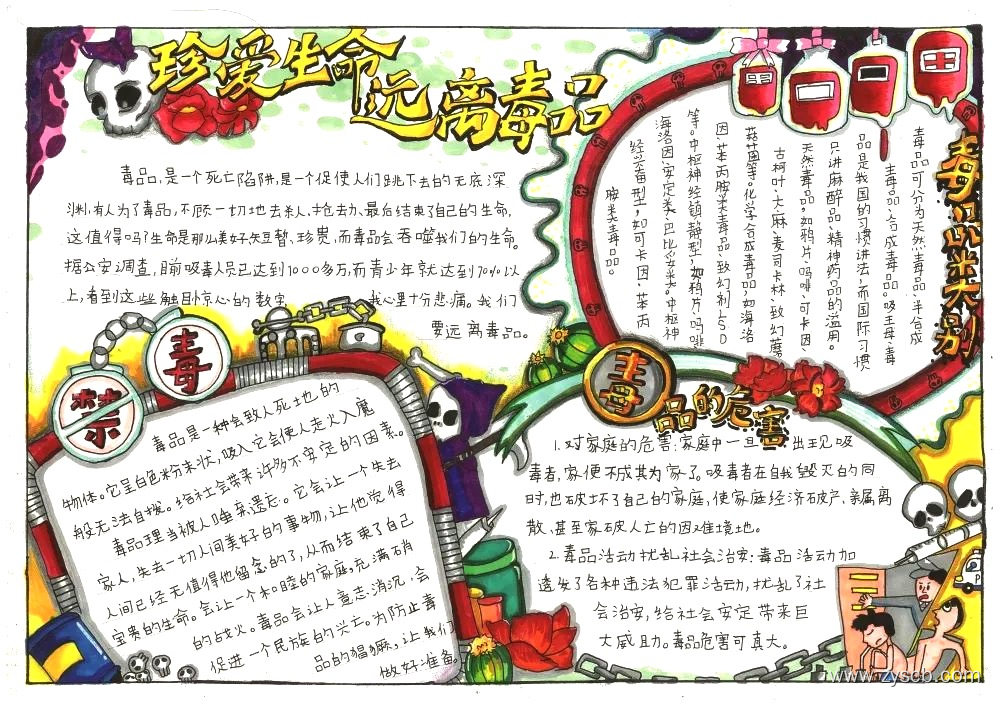 珍爱生命
远离毒品
毒品,是一个死亡陷阱,是一个促使人们跳下去的无底深
渊,有人为了毒品,不顾一切地去杀人,抢劫、最后结束了自己的生命,
这值得吗?生命是那么美好、短暂、珍贵,而毒品会吞噬我们的生命。
据公安调查,目前吸毒人员已达到1000多万,而青少年就达到70%以
上,看到这些触目惊心的数字 我心里十分悲痛。我们
要远离毒品。
毒品类别
毒品可分为天然毒品、半合成
毒品、合成毒品。吸毒、毒
品是我国的习惯讲法,而国际习惯
只讲麻醉品、精神药品的滥用。
天然毒品,如鸦片、吗啡、可卡因、
古柯叶、大麻、麦司卡林、致幻蘑
菇菌等。化学合成毒品,如海洛
因、苯丙胺类毒品、致幻剂LSD
等。中枢神经镇静型,如鸦片、吗啡
海洛因、安定类、巴比妥类。中枢神
经兴奋型,如可卡因、苯丙
胺类毒品。
禁
毒
毒品是一种会致人死地的
物体。它呈白色粉末状,吸入它会使人走火入魔
般无法自拔。给社会带来许多不安定的因素。
毒品理当被人唾弃、遗忘。它会让一个失去
家人,失去一切人间美好的事物,让他觉得
人间已经无值得他留念的了,从而结束了自己
宝贵的生命。会让一个和睦的家庭,充满硝
的战火。毒品会让人意志消沉,会
促进一个民族的兴亡。为防止毒
品的猖獗,让我们
做好准备。
毒品的危害
1.对家庭的危害:家庭中一旦 出现吸
毒者,家便不成其为家了。吸毒者在自我毁灭的同
时,也破坏了自己的家庭,使家庭经济破产、亲属离
散、甚至家破人亡的困难境地。
2.毒品活动扰乱社会治安:毒品活动加
遗发了各种违法犯罪活动,扰乱了社
会治安,给社会安定带来巨
大威胁。毒品危害可真大。
www.zyscb.com